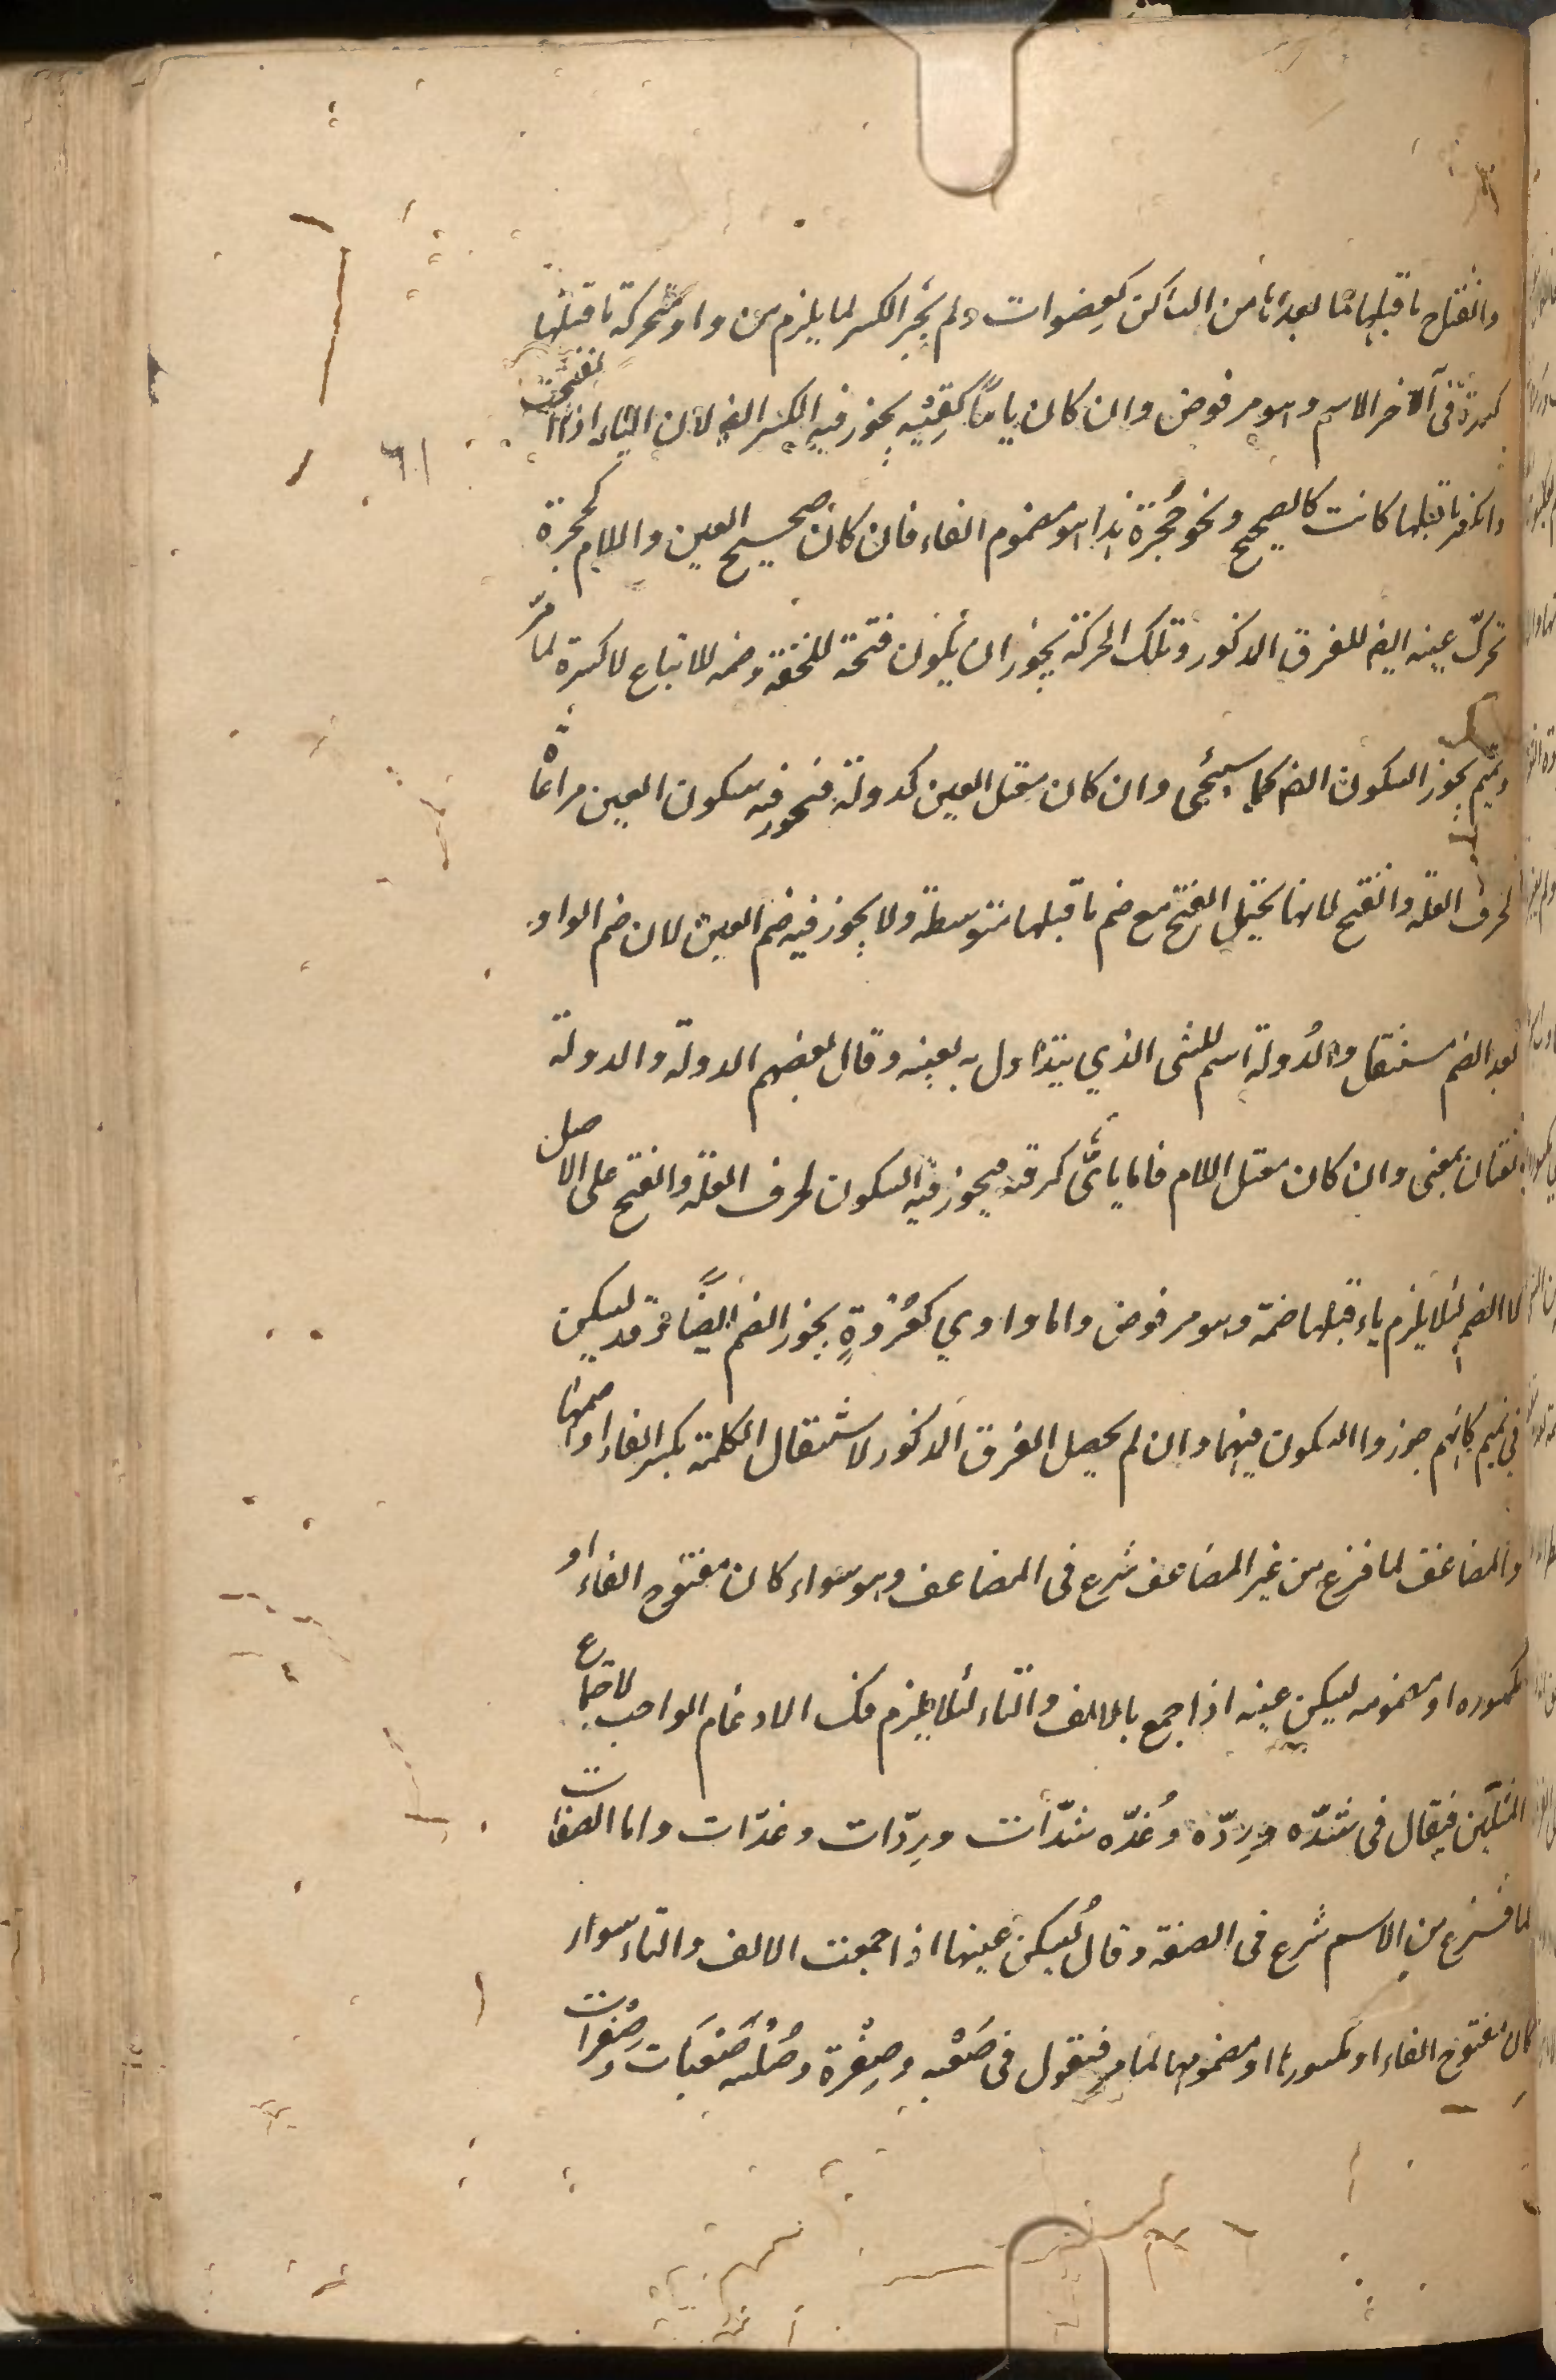 وانفتاح ما قبلها مما بعدها من الساكن كعِضوات ولم يَجُز الكسر لما يلزم من واو متحركة ما قبلها
كسرة فى آلاخر الاسم وهو مرفوض وان كان يائيا كقِنْيه يجوز فيه الكسر ايضا لان الياء اذا انفتحت
وانكسر ما قبلها كانت كالصحيح ونحو حُجرة هذا هو مضموم الفاء فان كان صحيح العين واللام كحجرة
تحرك عينه ايضا للفرق المذكور وتلك الحركة يجوز ان يكون فتحة للخفة وضمه للاتباع لا كسرة لما مرّ
وتميم يجوز السكون ايضا كما سيجئ وان كان معتل العين كدولة فيجوز فيه سكون العين مراعاة
لحرف العلة والفتح لانها تحتمل الفتح مع ضم ما قبلها متوسطة ولا يجوز فيه ضم العين لان ضم الواو
بعد الضم مستثقل والدُولة اسم للشى الذي يتداول به بعينه وقال بعضهم الدولة والدولة
لغتان بمعنى وان كان معتل اللام فاما يائىّ كرقية فيجوز فيه السكون لحرف العلة والفتح على الاصل
لا الضم لئلا يلزم ياء قبلها ضمة وهو مرفوض واما واوي كعُرْوةٍ يجوز الضم ايضًا وقد يسكن
فى تميم كانهم جوزوا السكون فيهما وان لم يحصل الفرق المذكور لاستثقال الكلمة بكسر الفاء او ضمها
والمضاعف لما فرغ من غير المضاعف شرع فى المضاعف وهو سواء كان مفتوح الفاء او
مكسوره او مضمومه يسكن عينه اذا جمع بالالف والتاء لئلا يلزم فك الادغام الواجب لاجتماع
المثلين فيقال فى شدّه ورِدّه وغُدّه شدّات ورِدّات وغدّات واما الصفات
لما فرغ من الاسم شرع فى الصفة وقال يُسكن عينها اذا جمعت الالف والتاء سواء
كان مفتوح الفاء او مكسورها او مضمومها لما مر فتقول فى صَعْبه وصِفْرة وصُلْبه صَعْبَات وصِفْرات
٦١